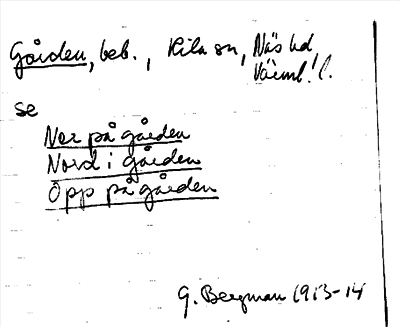 Gården, beb., Kila sn, Näs hd,
Värml. l.
se
Ner på gården
Nord i gården
Opp på gården
G. Bergman 1913-14